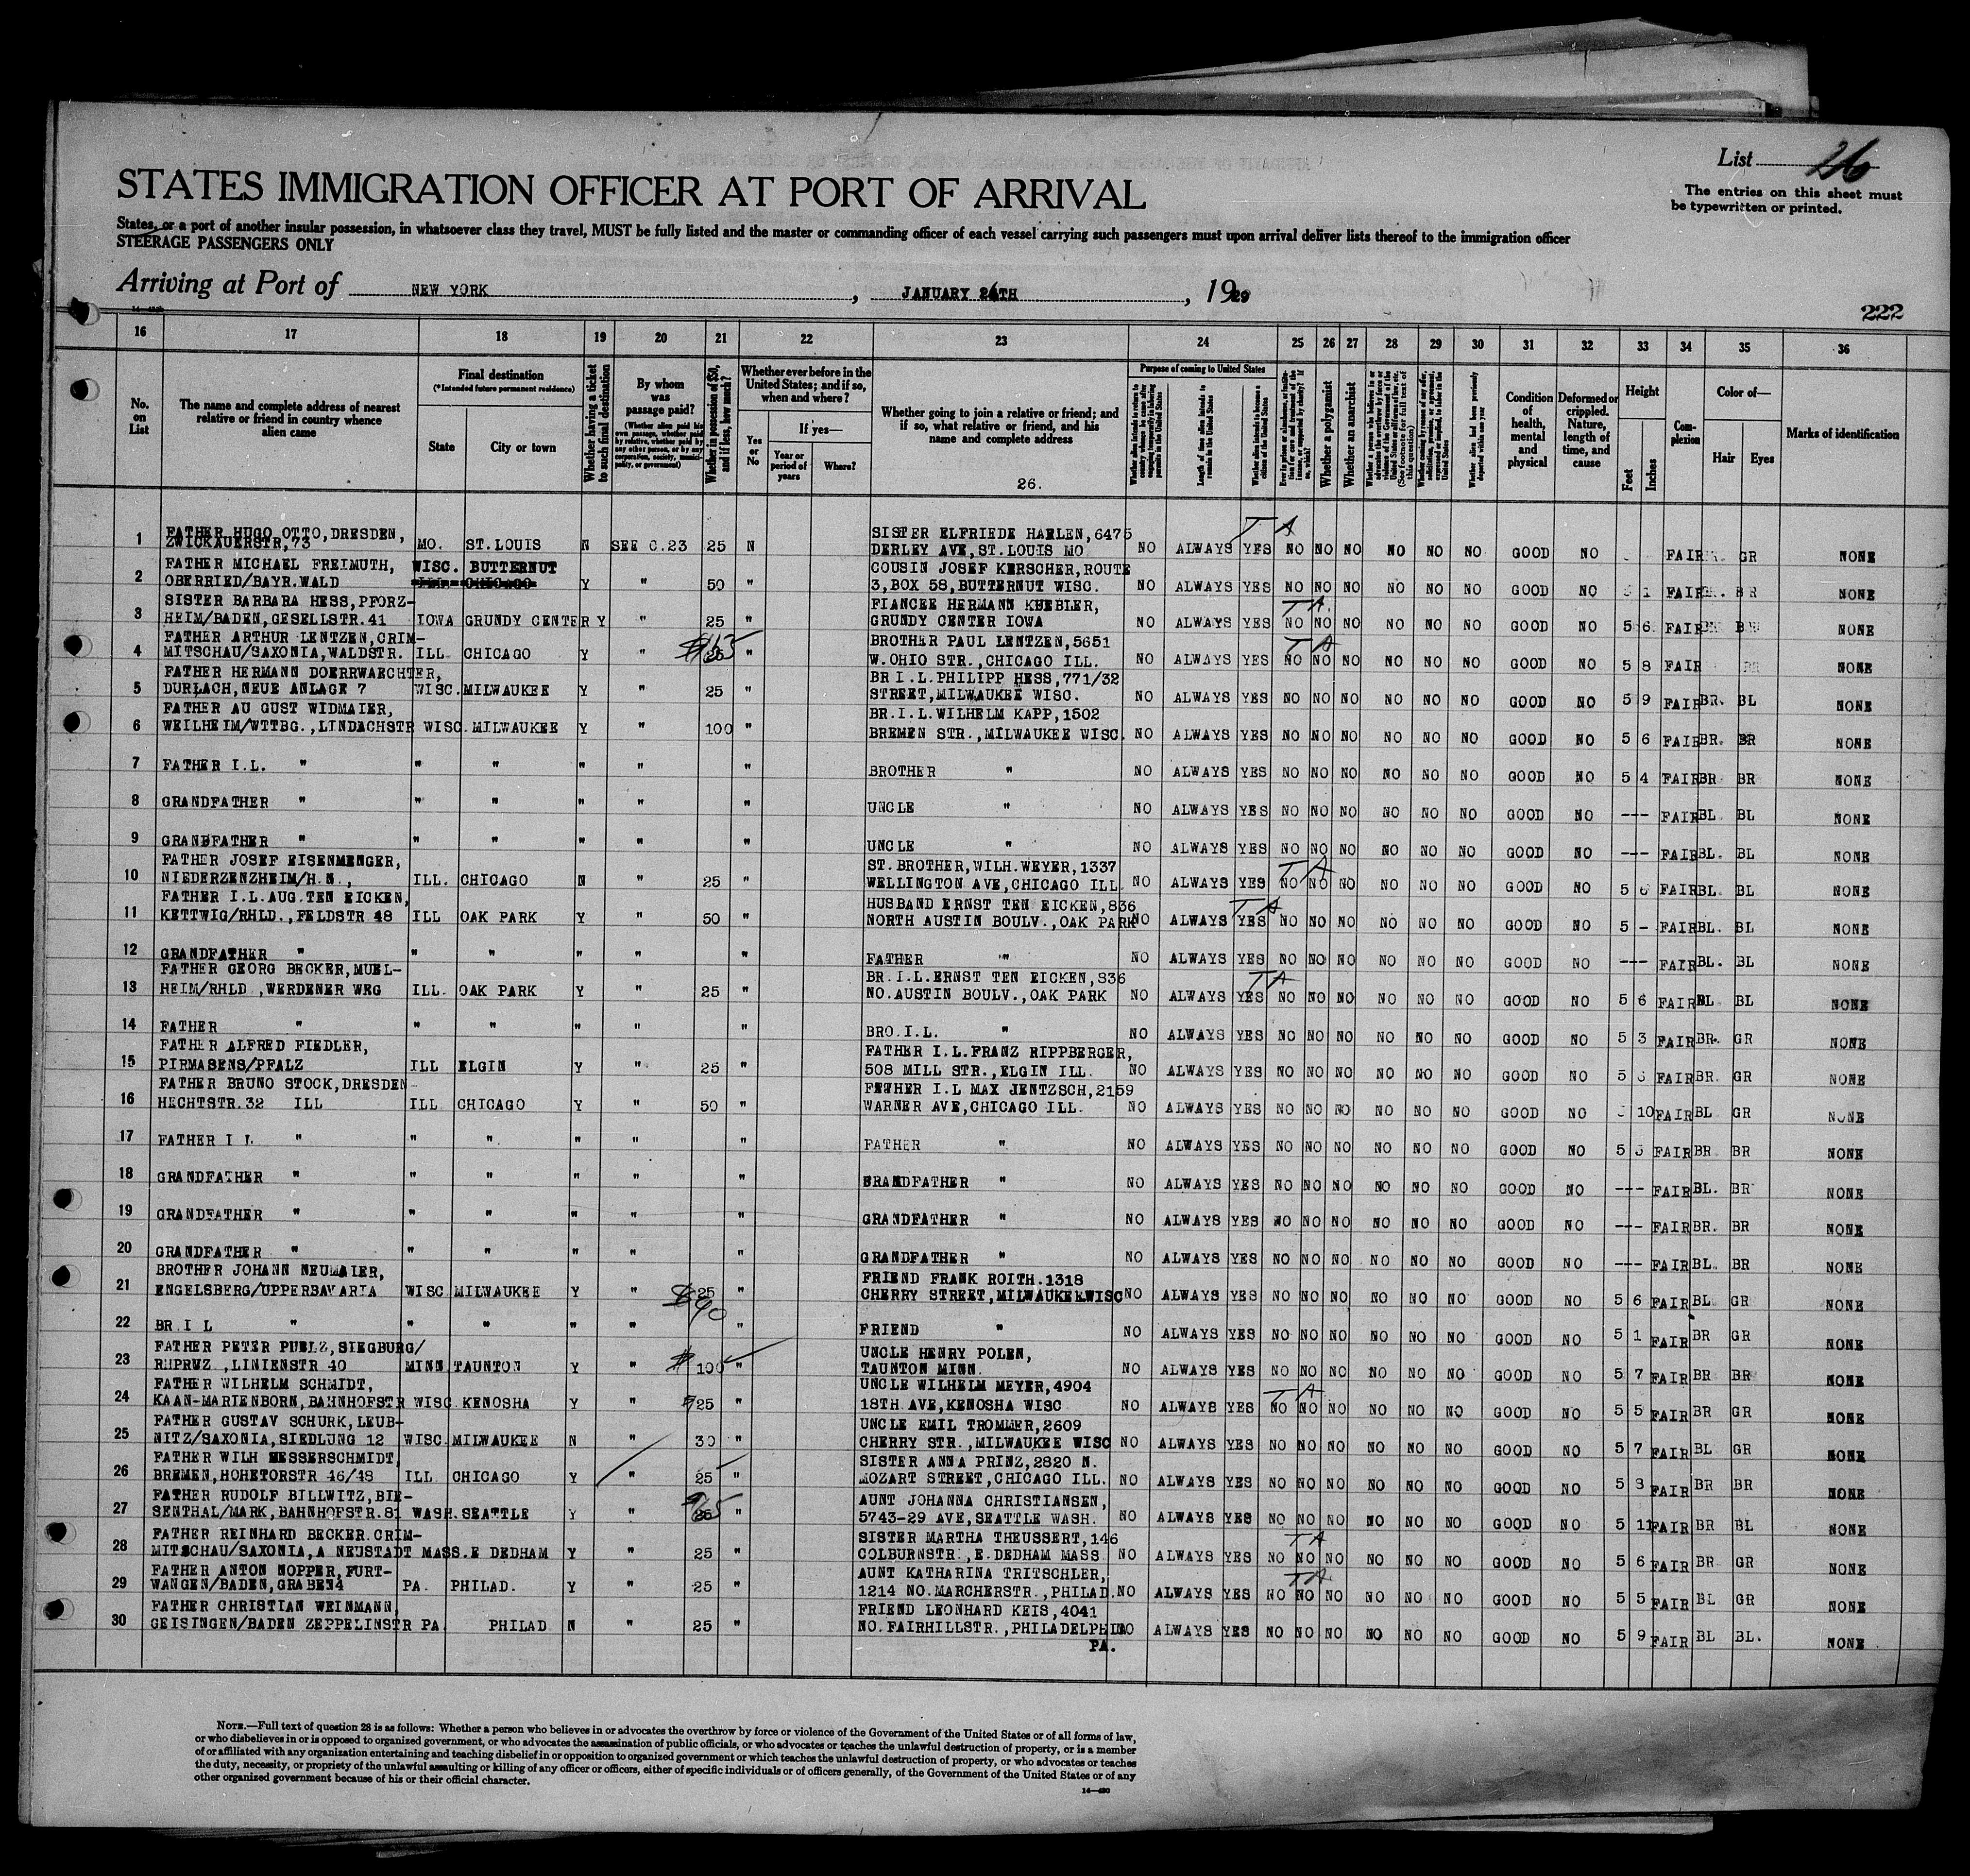 List 26
The entries on this sheet must
be typewritten or printed.
STATES IMMIGRATION OFFICER AT PORT OF ARRIVAL
States, or a port of another insular possession, in whatsoever class they travel, MUST be fully listed and the master or commanding officer of each vessel carrying such passengers must upon arrival deliver lists thereof to the immigration officer
STEERAGE PASSENGERS ONLY
Arriving at Port of NEW YORK, JANUARY TH, 1929
222
16 17 18 19 20 21 22 23 24 25 26 27 28 29 30 31 32 33 34 35 36
No. on List
The name and complete address of nearest relative or friend in country whence alien came
Final destination
(*Intended future permanent residence)
State
City or town
Whether having a ticket to such final destination
By whom was passage paid?
(Whether alien paid his own passage, whether paid by relative, whether paid by any other person, or by any corporation, society, municipality, or government)
Whether in possession of $50, and if less, how much?
Whether ever before in the United States; and if so, when and where?
Yes or No
If yes—
Year or period of years
Where?
Whether going to join a relative or friend; and if so, what relative or friend, and his name and complete address
26.
Purpose of coming to United States
Length of time alien intends to remain in the United States
Whether alien intends to become a citizen of the United States
Whether a polygamist
Whether an anarchist
Condition of health, mental and physical
Deformed or crippled. Nature, length of time, and cause
Height
Feet
Inches
Complexion
Color of—
Hair
Eyes
Marks of identification
T A
1 FATHER HUGO OTTO, DRESDEN, ZWICKAUERSTR, 73 MO. ST. LOUIS N SEE C.23 25 N SISTER ELFRIEDE HAELEN, 6475 DERLEY AVE, ST. LOUIS MO NO ALWAYS YES NO NO NO NO NO NO GOOD NO FAIR GR NONE
2 FATHER MICHAEL FREIMUTH, OBERRIED/BAYR.WALD WISC. BUTTERNUT ILL CHICAGO Y " 50 " COUSIN JOSEF KERSCHER, ROUTE 3, BOX 58, BUTTERNUT WISC. NO ALWAYS YES NO NO NO NO NO NO GOOD NO 1 FAIR BR NONE
T A.
3 SISTER BARBARA HESS, PFORZ-HEIM/BADEN, GESELLSTR.41 IOWA GRUNDY CENTER Y " 25 " FIANCEE HERMANN KUEBLER, GRUNDY CENTER IOWA NO ALWAYS YES NO NO NO NO NO NO GOOD NO 5 6 FAIR NONE
T A
4 FATHER ARTHUR LENTZEN, CRIM-MITSCHAU/SAXONIA, WALDSTR. ILL CHICAGO Y " 25 " BROTHER PAUL LENTZEN, 5651 W.OHIO STR., CHICAGO ILL. NO ALWAYS YES NO NO NO NO NO NO GOOD NO 5 8 FAIR NONE
5 FATHER HERMANN DOERRWAECHTER, DURLACH, NEUE ANLAGE 7 WISC. MILWAUKEE Y " 25 " BR I.L. PHILIPP HESS, 771/32 STREET, MILWAUKEE WISC. NO ALWAYS YES NO NO NO NO NO NO GOOD NO 5 9 FAIR BR. BL NONE
6 FATHER AU GUST WIDMAIER, WEILHEIM/WTTBG., LINDACHSTR WISC. MILWAUKEE Y " 100 " BR.I.L.WILHELM KAPP, 1502 BREMEN STR., MILWAUKEE WISC. NO ALWAYS YES NO NO NO NO NO NO GOOD NO 5 6 FAIR BR. BR NONE
7 FATHER I.L. " " " " " " BROTHER " NO ALWAYS YES NO NO NO NO NO NO GOOD NO 5 4 FAIR BR BR NONE
8 GRANDFATHER " " " " " " UNCLE " NO ALWAYS YES NO NO NO NO NO NO GOOD NO --- FAIR BL BL NONE
9 GRANDFATHER " " " " " " UNCLE " NO ALWAYS YES NO NO NO NO NO NO GOOD NO --- FAIR BL. BL NONE
T A
10 FATHER JOSEF EISENMENGER, NIEDERZENZHEIM/H.N., ILL. CHICAGO N " 25 " ST.BROTHER, WILH.WEYER, 1337 WELLINGTON AVE, CHICAGO ILL. NO ALWAYS YES NO NO NO NO NO NO GOOD NO 5 6 FAIR BL. BL NONE
T A
11 FATHER I.L.AUG.TEN EICKEN, KETTWIG/RHLD., FELDSTR 48 ILL OAK PARK Y " 50 " HUSBAND ERNST TEN EICKEN, 836 NORTH AUSTIN BOULV., OAK PARK NO ALWAYS YES NO NO NO NO NO NO GOOD NO 5 - FAIR BL. BL NONE
12 GRANDFATHER " " " " " " FATHER " NO ALWAYS YES NO NO NO NO NO NO GOOD NO --- FAIR BL. BL NONE
T A
13 FATHER GEORG BECKER, MUEL-HEIM/RHLD, WERDENER WRG ILL. OAK PARK Y " 25 " BR.I.L.ERNST TEN EICKEN, 836 NO.AUSTIN BOULV., OAK PARK NO ALWAYS YES NO NO NO NO NO NO GOOD NO 5 6 FAIR BL BL NONE
14 FATHER " " " " " " BRO.I.L. " NO ALWAYS YES NO NO NO NO NO NO GOOD NO 5 3 FAIR BR. GR NONE
15 FATHER ALFRED FIEDLER, PIRMASENS/PFALZ ILL ELGIN Y " 25 " FATHER I.L.FRANZ RIPPBERGER, 508 MILL STR., ELGIN ILL. NO ALWAYS YES NO NO NO NO NO NO GOOD NO 5 FAIR BR. GR NONE
16 FATHER BRUNO STOCK, DRESDEN HECHTSTR.32 ILL ILL CHICAGO Y " 50 " FETHER I.L MAX JENTZSCH, 2159 WARNER AVE, CHICAGO ILL. NO ALWAYS YES NO NO NO NO NO NO GOOD NO 10 FAIR BL GR NONE
17 FATHER I L " " " " " " FATHER " NO ALWAYS YES NO NO NO NO NO NO GOOD NO 5 FAIR BR BR NONE
18 GRANDFATHER " " " " " " GRANDFATHER " NO ALWAYS YES NO NO NO NO NO NO GOOD NO --- FAIR BL. BR NONE
19 GRANDFATHER " " " " " " GRANDFATHER " NO ALWAYS YES NO NO NO NO NO NO GOOD NO --- FAIR BR. BR NONE
20 GRANDFATHER " " " " " " GRANDFATHER " NO ALWAYS YES NO NO NO NO NO NO GOOD NO --- FAIR BL. BR NONE
21 BROTHER JOHANN NEUMAIER, ENGELSBERG/UPPERBAVARIA WISC MILWAUKEE Y " 25 $90 " FRIEND FRANK ROITH.1318 CHERRY STREET, MILWAUKEE WISC NO ALWAYS YES NO NO NO NO NO NO GOOD NO 5 6 FAIR BL GR NONE
22 BR.I L " " " " " " FRIEND " NO ALWAYS YES NO NO NO NO NO NO GOOD NO 5 1 FAIR BR GR NONE
23 FATHER PETER PUELZ, SIEGBURG/ RHPRVZ, LINIENSTR 40 MINN TAUNTON Y " $ 100 " UNCLE HENRY POLEN, TAUNTON MINN. NO ALWAYS YES NO NO NO NO NO NO GOOD NO 5 7 FAIR BR BR NONE
T A
24 FATHER WILHELM SCHMIDT, KAAN-MARIENBORN, BAHNHOFSTR WISC KENOSHA Y " 25 " UNCLE WILHELM MEYER, 4904 18TH AVE, KENOSHA WISC NO ALWAYS YES NO NO NO NO NO NO GOOD NO 5 5 FAIR BR GR NONE
25 FATHER GUSTAV SCHURK, LEUB-NITZ/SAXONIA, SIEDLUNG 12 WISC. MILWAUKEE N " 30 " UNCLE EMIL TROMMER, 2609 CHERRY STR., MILWAUKEE WISC NO ALWAYS YES NO NO NO NO NO NO GOOD NO 5 7 FAIR BL GR NONE
26 FATHER WILH MESSERSCHMIDT, BREMEN, HOHETORSTR 46/48 ILL CHICAGO Y " 25 " SISTER ANNA PRINZ, 2820 N. MOZART STREET, CHICAGO ILL. NO ALWAYS YES NO NO NO NO NO NO GOOD NO 5 3 FAIR BR BR NONE
27 FATHER RUDOLF BILLWITZ, BIE-SENTHAL/MARK, BAHNHOFSTR.81 WASH. SEATTLE Y " " AUNT JOHANNA CHRISTIANSEN, 5743-29 AVE, SEATTLE WASH. NO ALWAYS YES NO NO NO NO NO NO GOOD NO 5 11 FAIR BR BL NONE
T A
28 FATHER REINHARD BECKER.CRIM-MITSCHAU/SAXONIA, A NEUSTADT MASS. E DEDHAM Y " 25 " SISTER MARTHA THEUSSERT, 146 COLBURNSTR., E.DEDHAM MASS NO ALWAYS YES NO NO NO NO NO NO GOOD NO 5 6 FAIR BR GR NONE
T A
29 FATHER ANTON NOPPER, FURT-WANGEN/BADEN, GRABEN4 PA. PHILAD. Y " 25 " AUNT KATHARINA TRITSCHLER, 1214 NO.MARCHERSTR., PHILAD. NO ALWAYS YES NO NO NO NO NO NO GOOD NO 5 5 FAIR BL GR NONE
30 FATHER CHRISTIAN WEINMANN, GEISINGEN/BADEN ZEPPELINSTR PA. PHILAD N " 25 " FRIEND LEONHARD KEIS, 4041 NO.FAIRHILLSTR., PHILADELPHIA PA. NO ALWAYS YES NO NO NO NO NO NO GOOD NO 5 9 FAIR BL BL. NONE
NOTE.—Full text of question 28 is as follows: Whether a person who believes in or advocates the overthrow by force or violence of the Government of the United States or of all forms of law,
or who disbelieves in or is opposed to organized government, or who advocates the assassination of public officials, or who advocates or teaches the unlawful destruction of property, or is a member
of or affiliated with any organization entertaining and teaching disbelief in or opposition to organized government or which teaches the unlawful destruction of property, or who advocates or teaches
the duty, necessity, or propriety of the unlawful assaulting or killing of any officer or officers, either of specific individuals or of officers generally, of the Government of the United States or of any
other organized government because of his or their official character.
14—480